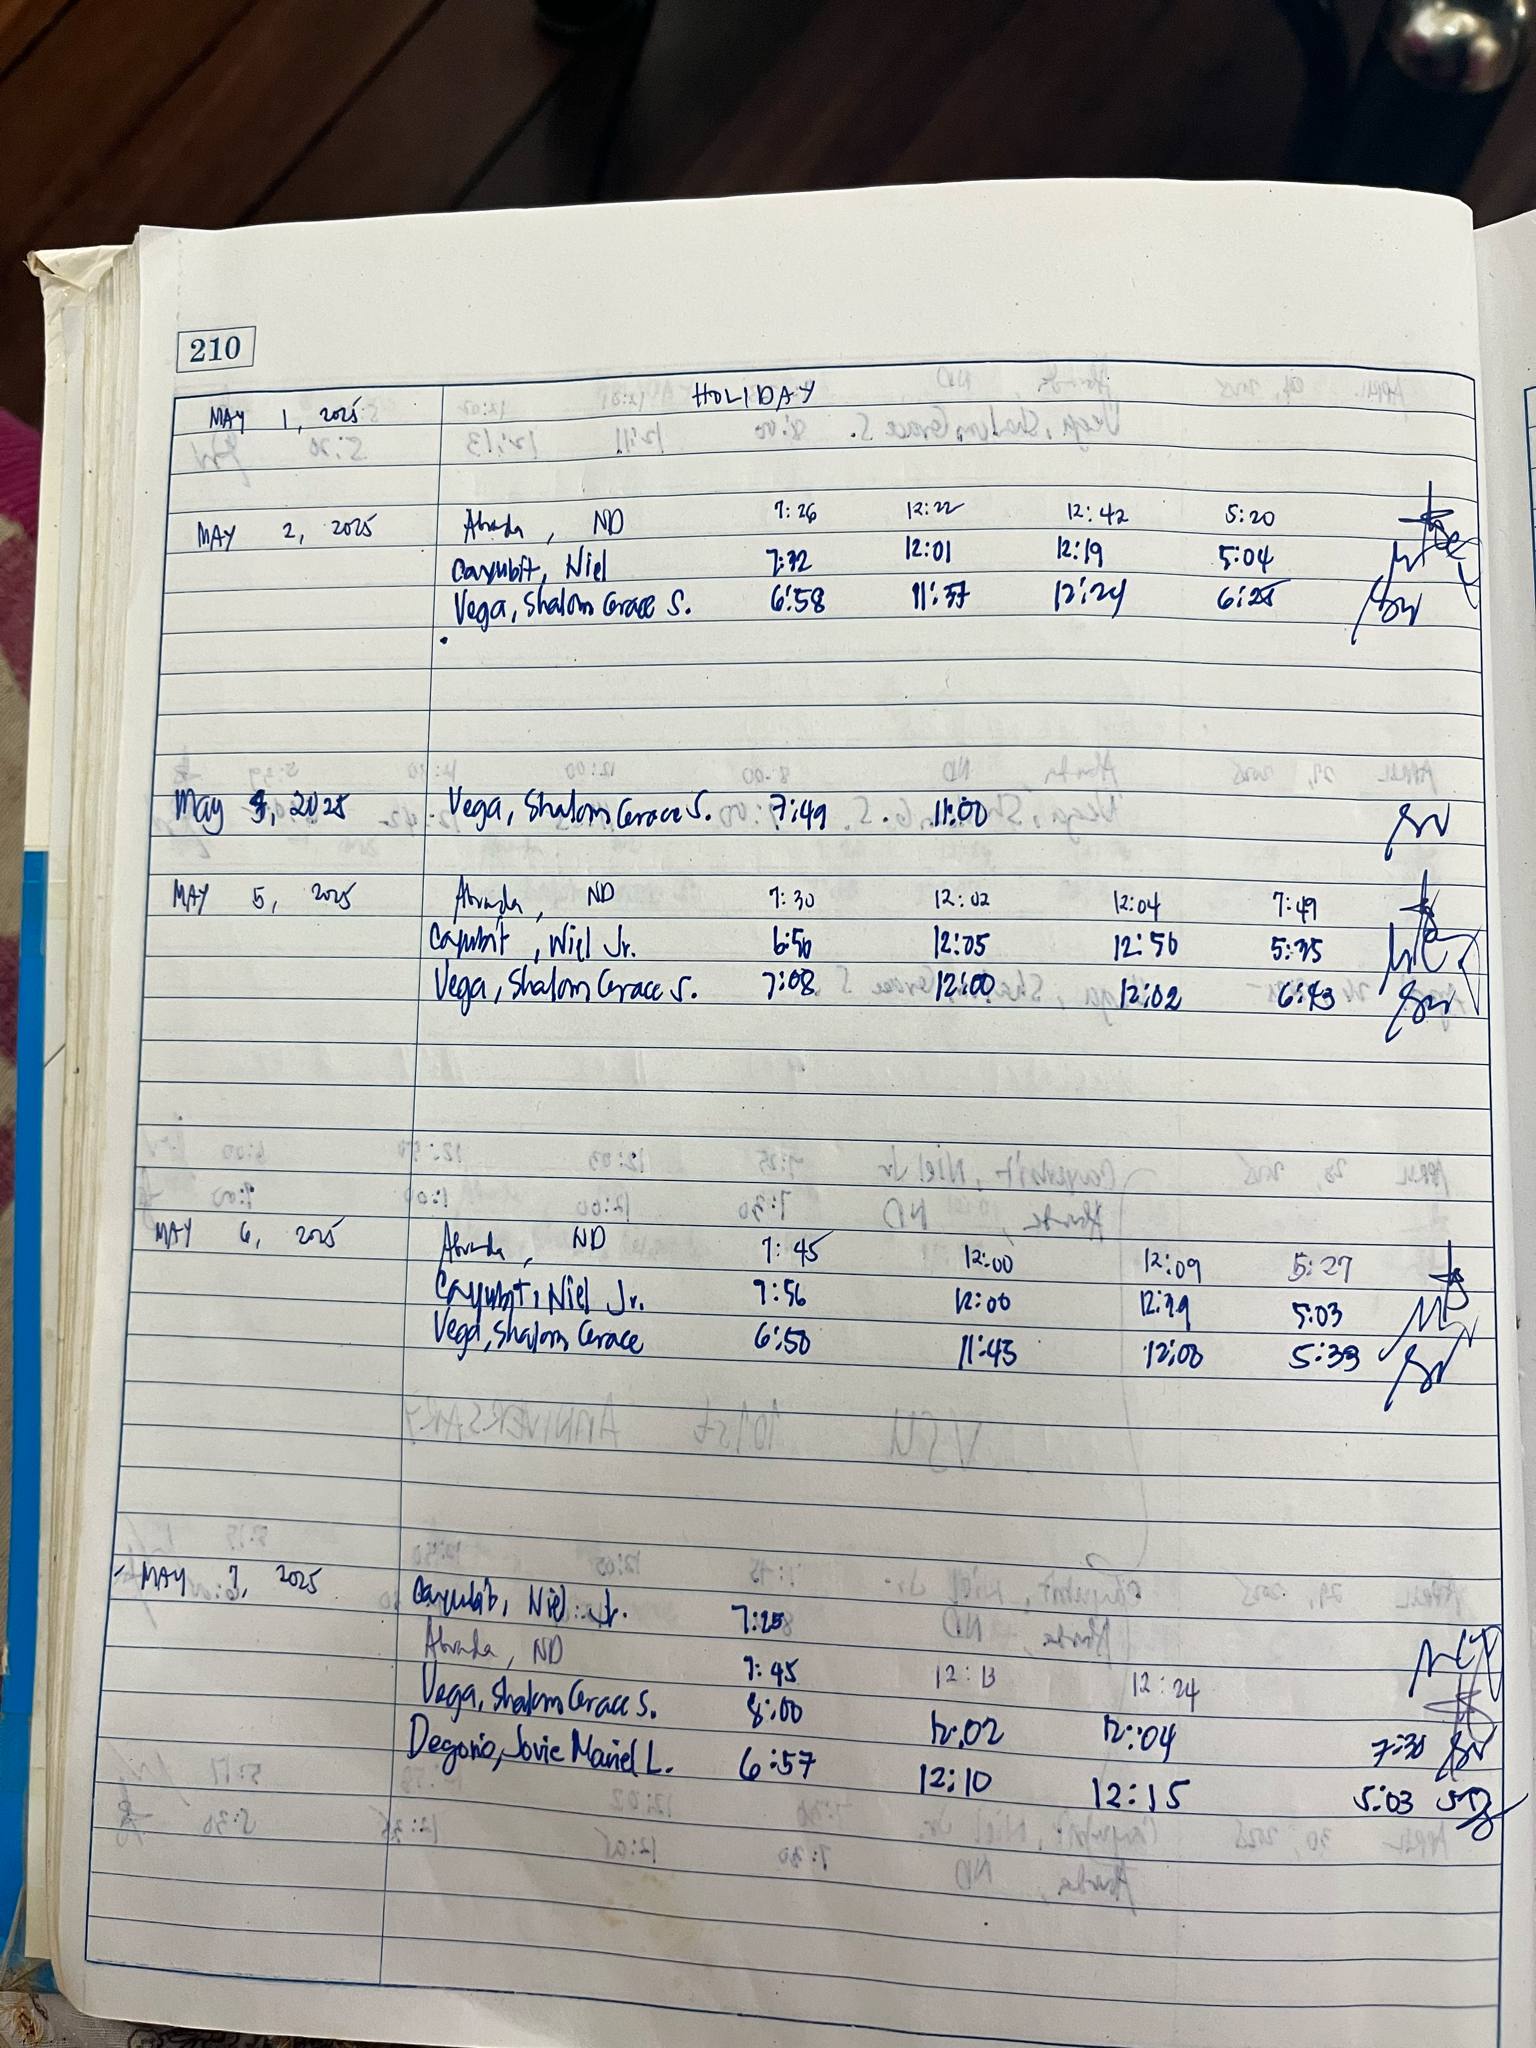 210
MAY 1, 2025 HOLIDAY
MAY 2, 2025 Abrada, ND 7:26 12:22 12:42 5:20
Cayubit, Niel 7:32 12:01 12:19 5:04
Vega, Shalom Grace S. 6:58 11:37 12:24 6:25
May 2025 Vega, Shalom Grace S. 7:49 11:00
MAY 5, 2025 Abrada, ND 7:30 12:02 12:04 7:49
Cayubit, Niel Jr. 6:50 12:05 12:50 5:35
Vega, Shalom Grace S. 7:08 12:00 12:02 6:43
MAY 6, 2025 Abrada, ND 7:45 12:00 12:09 5:27
Cayubit, Niel Jr. 7:56 12:00 12:39 5:03
Vega, Shalom Grace 6:50 11:45 12:00 5:33
MAY 7, 2025 Cayubit, Niel Jr. 7:25
Abrada, ND 7:45 12:13 12:24
Vega, Shalom Grace S. 8:00 12:02 12:04 7:30
Degorio, Jovie Mariel L. 6:57 12:10 12:15 5:03